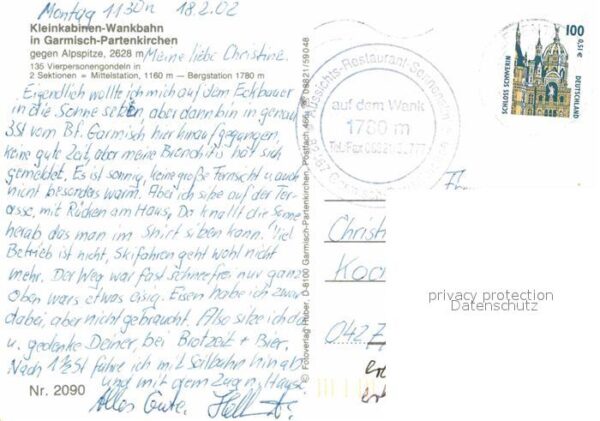 Montag 11 30h 18.2.02
Kleinkabinen-Wankbahn
in Garmisch-Partenkirchen
gegen Alpspitze, 2628 m
Meine liebe Christine.
135 Vierpersonengondeln in
2 Sektionen = Mittelstation, 1160 m — Bergstation 1780 m
Eigendlich wollte ich mich auf dem Eckbauer
in die Sonne setzen, aber dann bin in genau
3St vom Bf. Garmisch hier hinauf gegangen,
keine gute Zeit, aber meine Bronchitis hat sich
gemeldet. Es ist sonnig, keine große Fernsicht u. auch
nicht besonders warm. Aber ich sitze auf der Ter-
asse, mit Rücken am Haus, Da knallt die Sonne
herab das man im Shirt sitzen kann. Viel
Betrieb ist nicht, Skifahren geht wohl nicht
mehr. Der Weg war fast schneefrei nur ganz
oben wars etwas eisig. Eisen habe ich zwar
dabei, aber nicht gebraucht. Also sitze ich da
u. gedenke Deiner, bei Brotzeit + Bier.
Nach 1½St fahre ich mit Seilbahn hinab
und mit dem Zug n. Hause!
Alles Gute.
Nr. 2090
© Fotoverlag Huber, D-8100 Garmisch-Partenkirchen, Postfach 464, ☎ 08821/59048
Aussichts-Restaurant-Sonnenalm
auf dem Wank
1780 m
Tel./Fax
100
0,51 €
SCHLOSS SCHWERIN
DEUTSCHLAND
Christ
Koc
042
privacy protection
Datenschutz